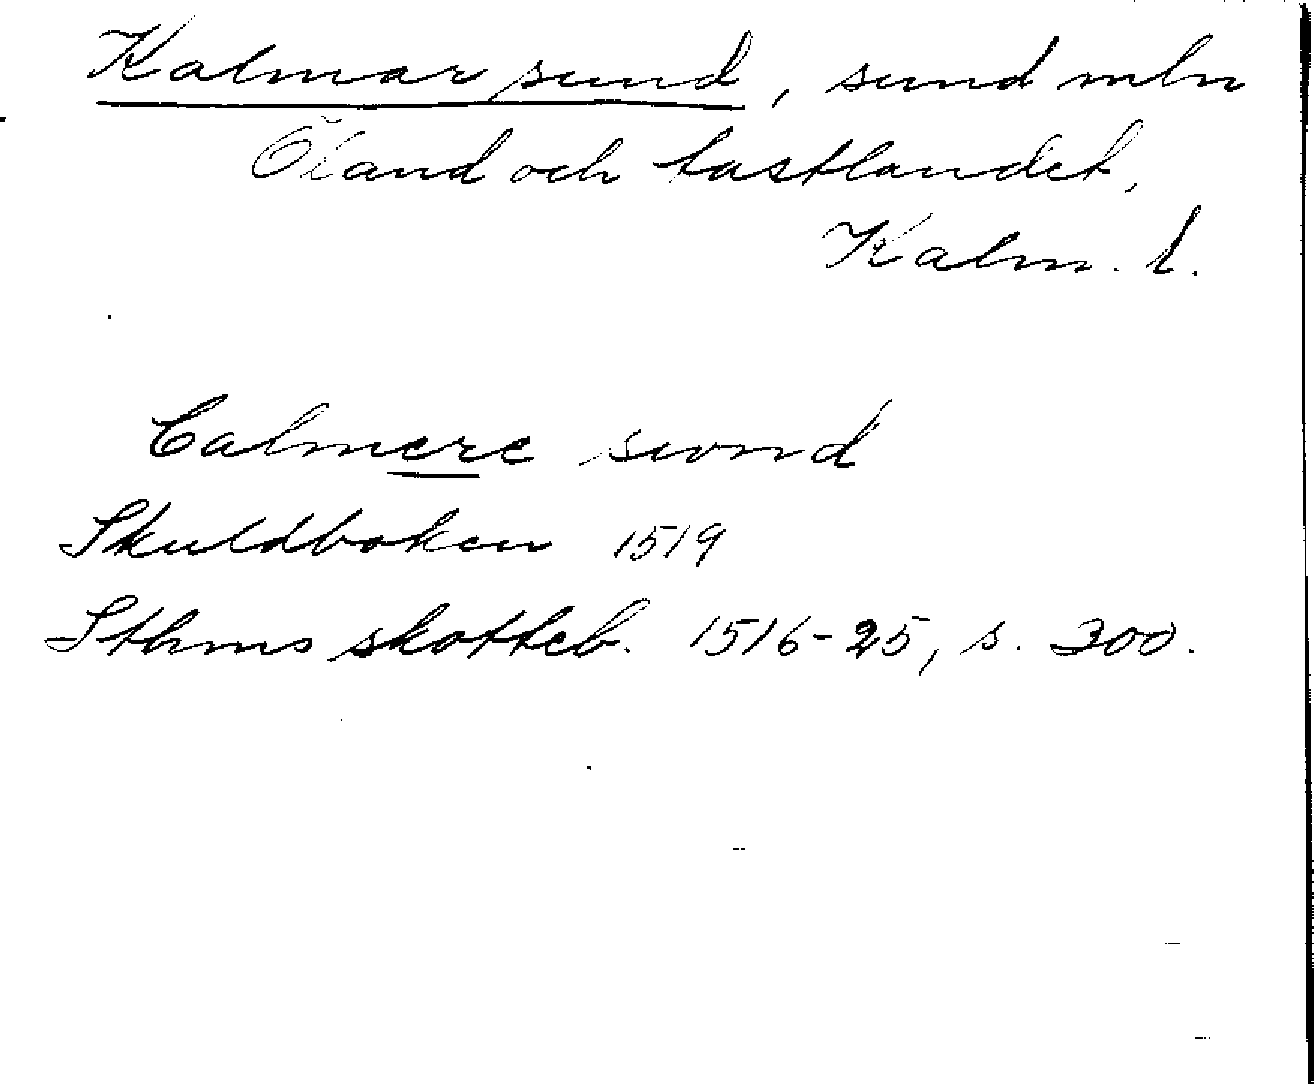 Kalmar sund, sund mln
Öland och fastlandet,
Kalm. l.
Calmere swnd
Skuldboken 1519
Sthms skotteb. 1516-25, s. 300.